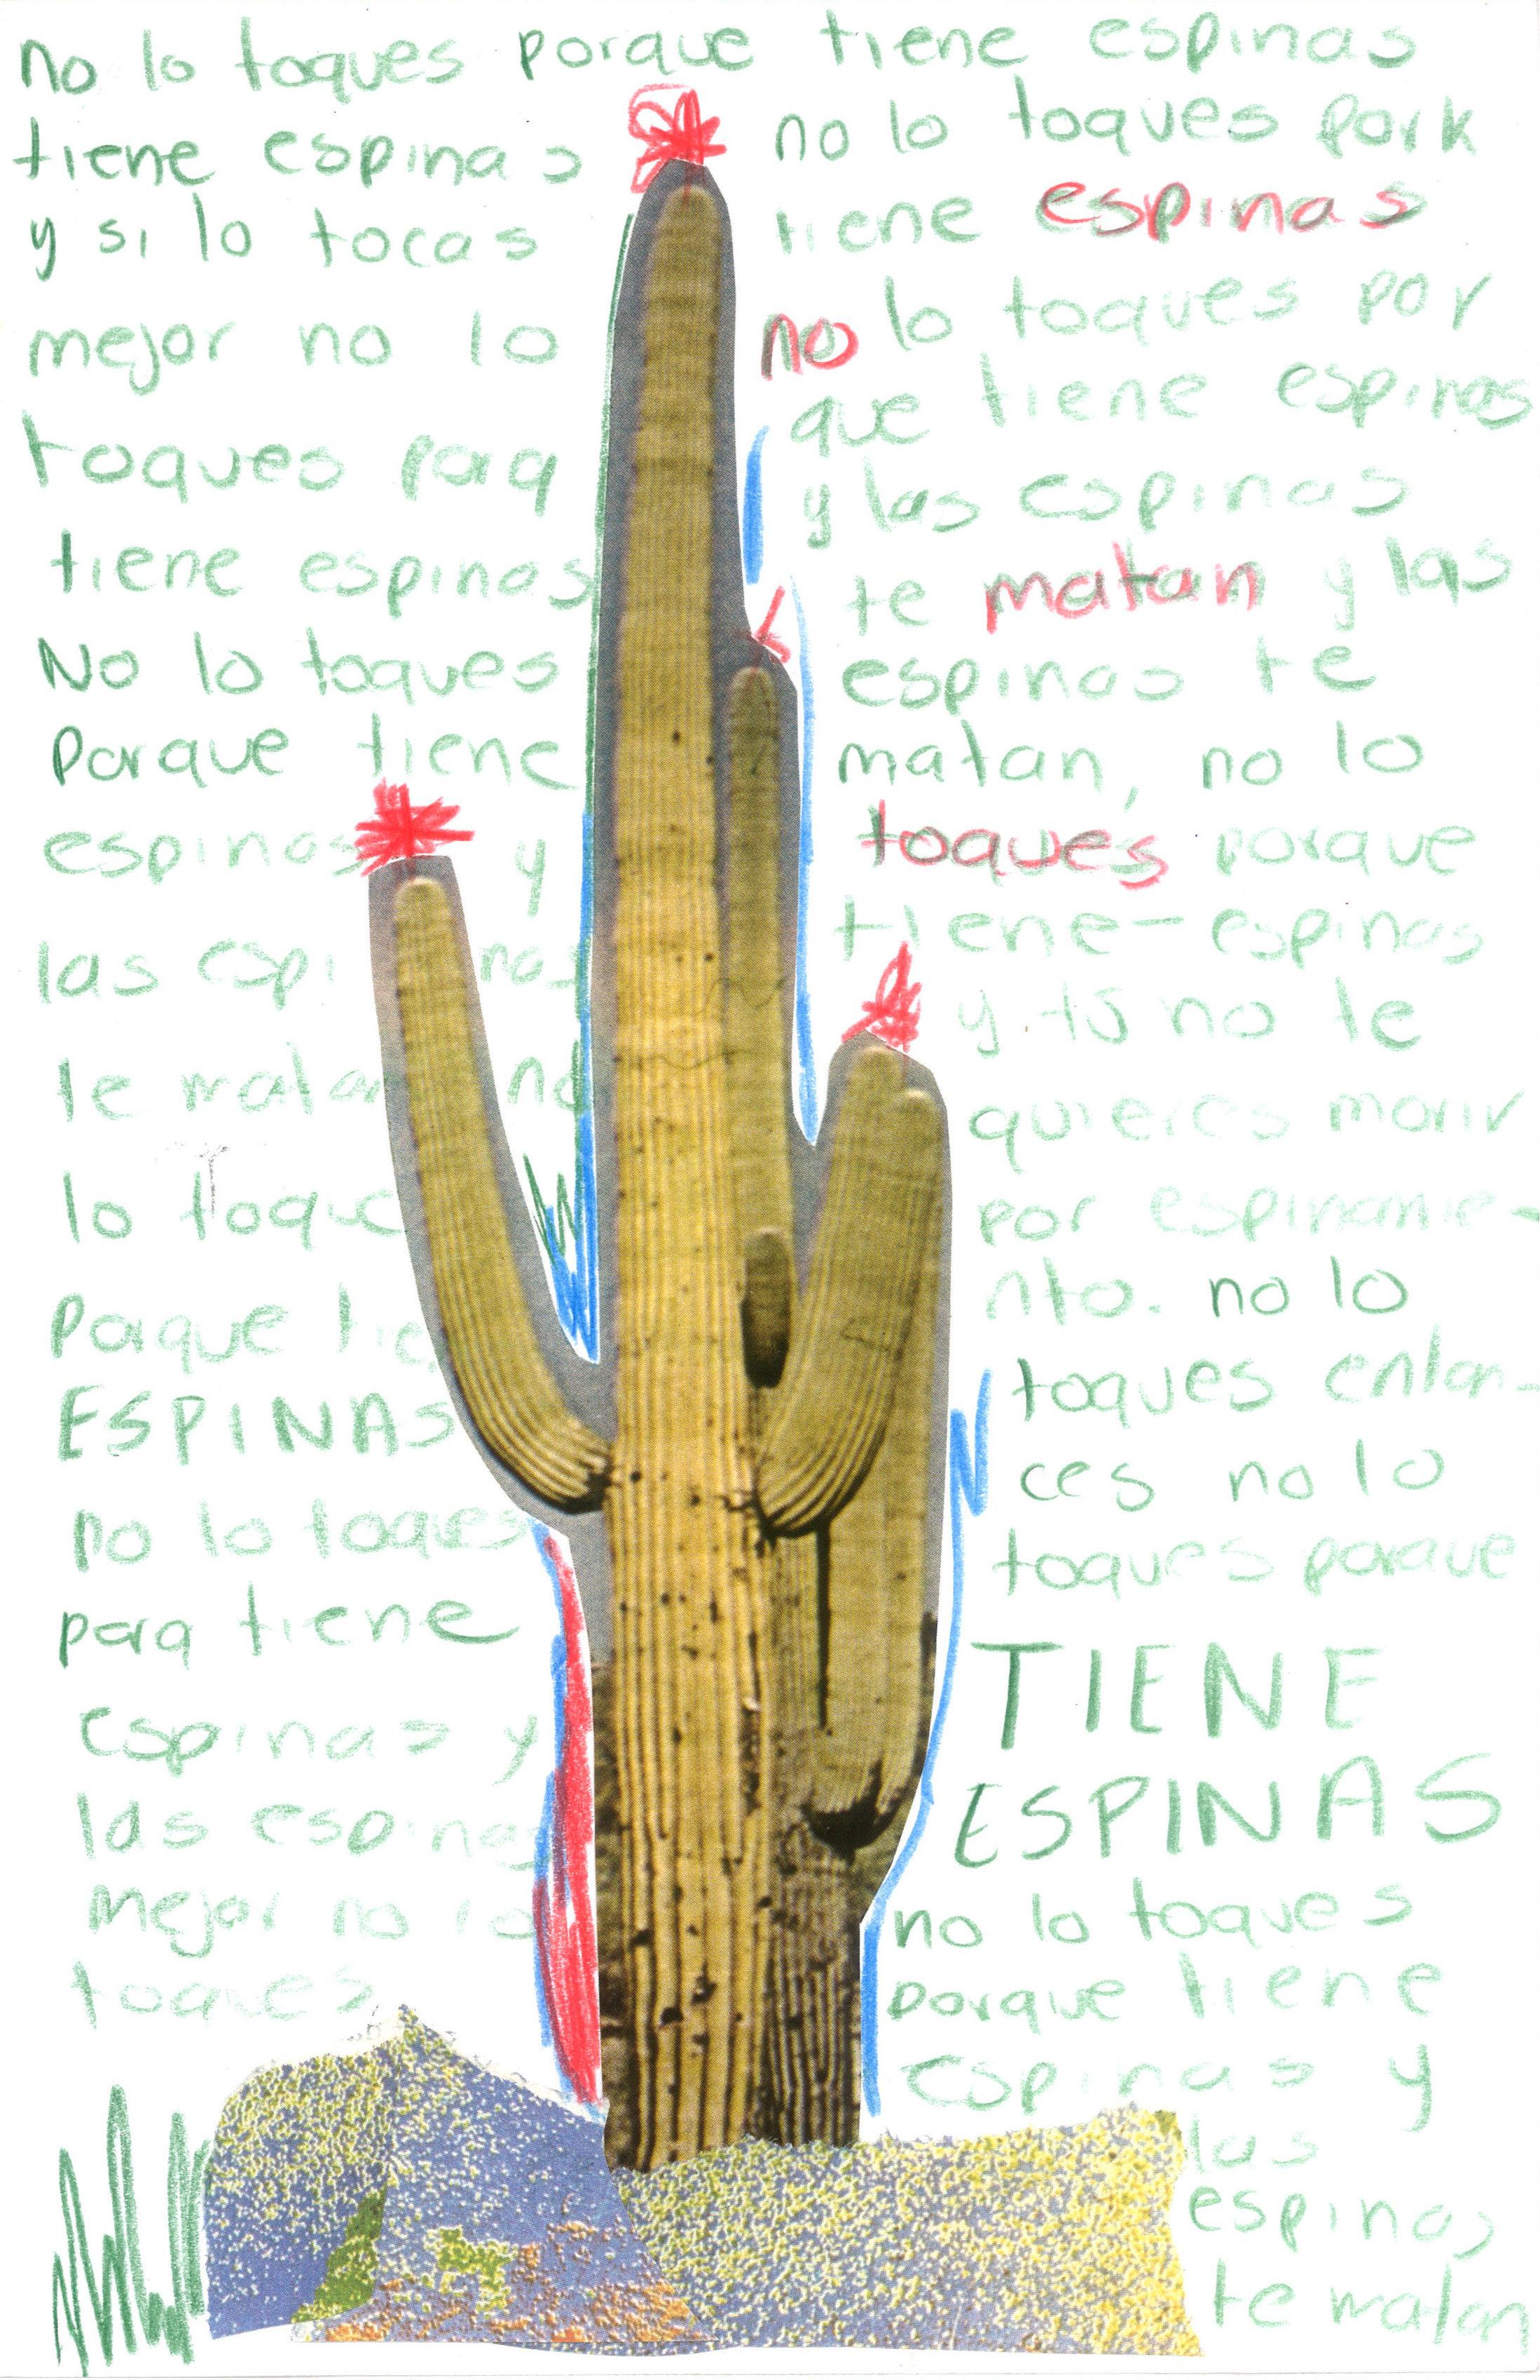 no lo toques porque tiene espinas
tiene espinas
y si lo tocas
mejor no lo
toques porq
tiene espinas
No lo toques
Porque tiene
espinas y
las espinas
te matan no
lo toque
Porque tie
ESPINAS
no lo toques
porq tiene
espinas y
las espinas
Mejor no lo
toques
no lo toques pork
tiene espinas
no lo toques por
que tiene espinas
y las espinas
te matan y las
espinas te
matan, no lo
toques porque
tiene- espinas
y tú no te
quieres morir
por espinamie-
nto. no lo
toques enton-
ces no lo
toques porque
TIENE
ESPINAS
no lo toques
porque tiene
espinas y
las
espinas
te matan